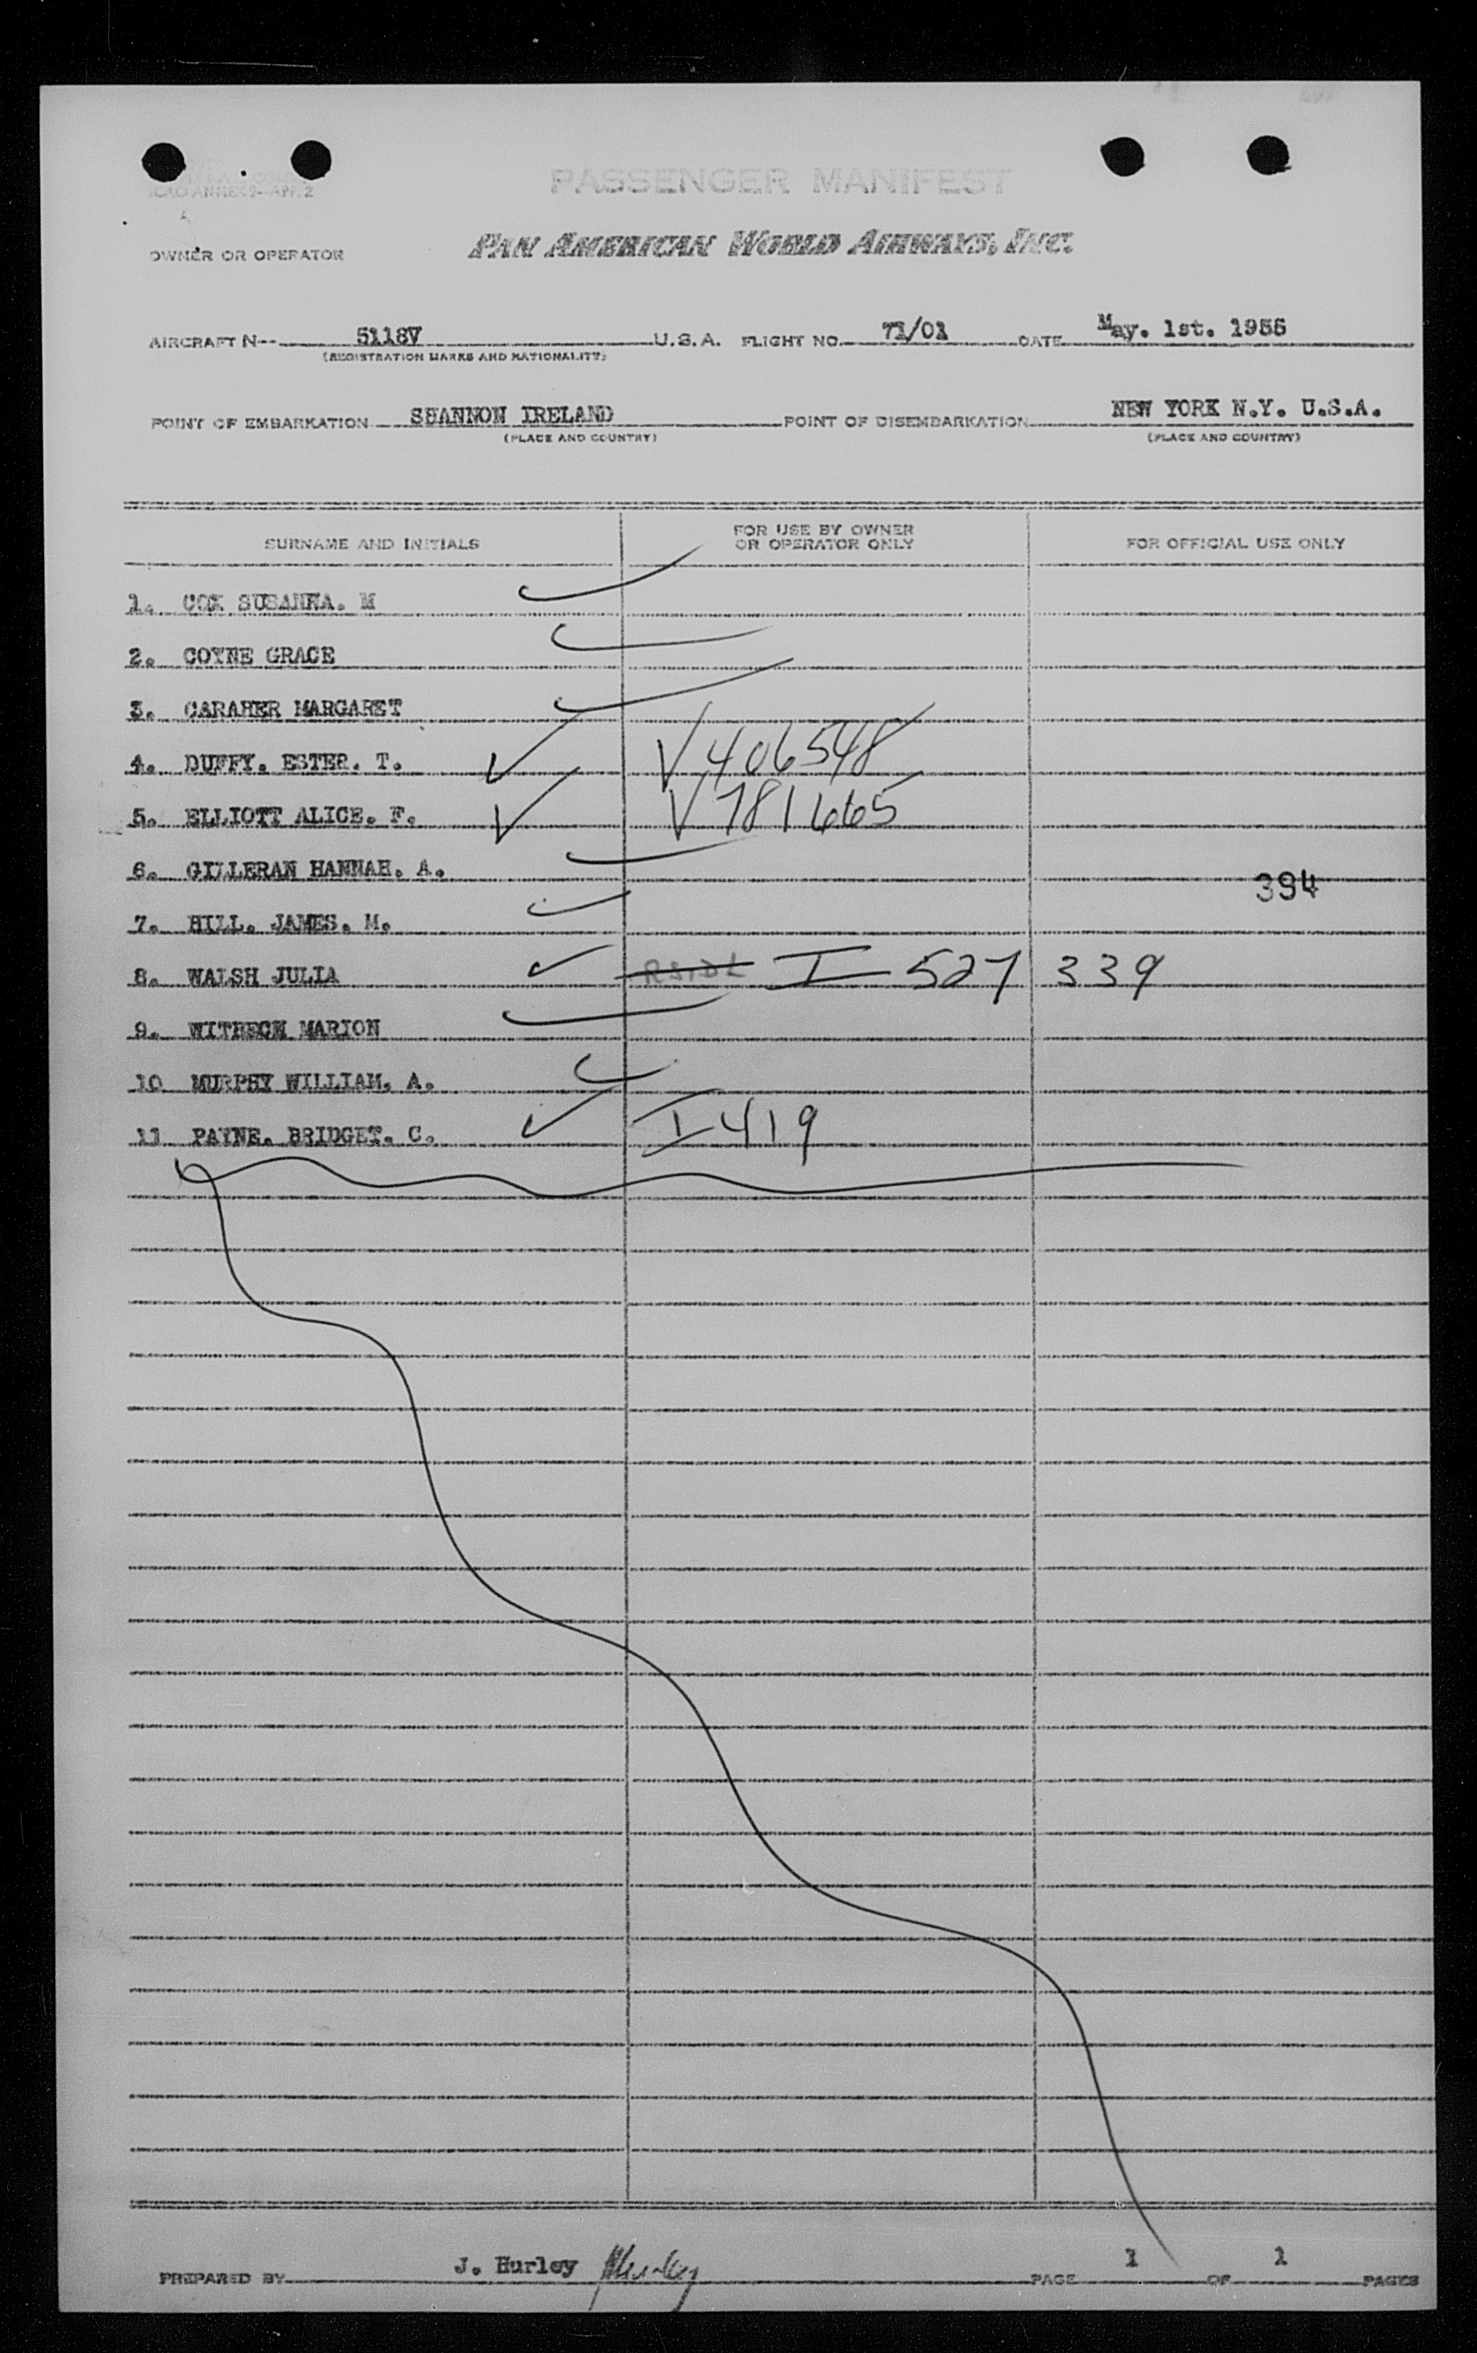 ICAO ANNEX 9-APP. 2
PASSENGER MANIFEST
OWNER OR OPERATOR PAN AMERICAN WORLD AIRWAYS, INC.
AIRCRAFT N-- 5118V U.S.A. FLIGHT NO. 71/01 DATE May. 1st. 1956
(REGISTRATION MARKS AND NATIONALITY)
POINT OF EMBARKATION SHANNON IRELAND POINT OF DISEMBARKATION NEW YORK N.Y. U.S.A.
(PLACE AND COUNTRY) (PLACE AND COUNTRY)
SURNAME AND INITIALS FOR USE BY OWNER OR OPERATOR ONLY FOR OFFICIAL USE ONLY
1. COX SUSANNA. M
2. COYNE GRACE
3. CARAHER MARGARET
4. DUFFY. ESTER. T. V 406548
5. ELLIOTT ALICE. F. V 781665
6. GILLERAN HANNAH. A.
394
7. HILL. JAMES. M.
8. WALSH JULIA I - 527 339
9. WITBECK MARION
10 MURPHY WILLIAM. A.
11 PAYNE. BRIDGET. C. I 419
PREPARED BY J. Hurley JHurley PAGE 1 OF 1 PAGES